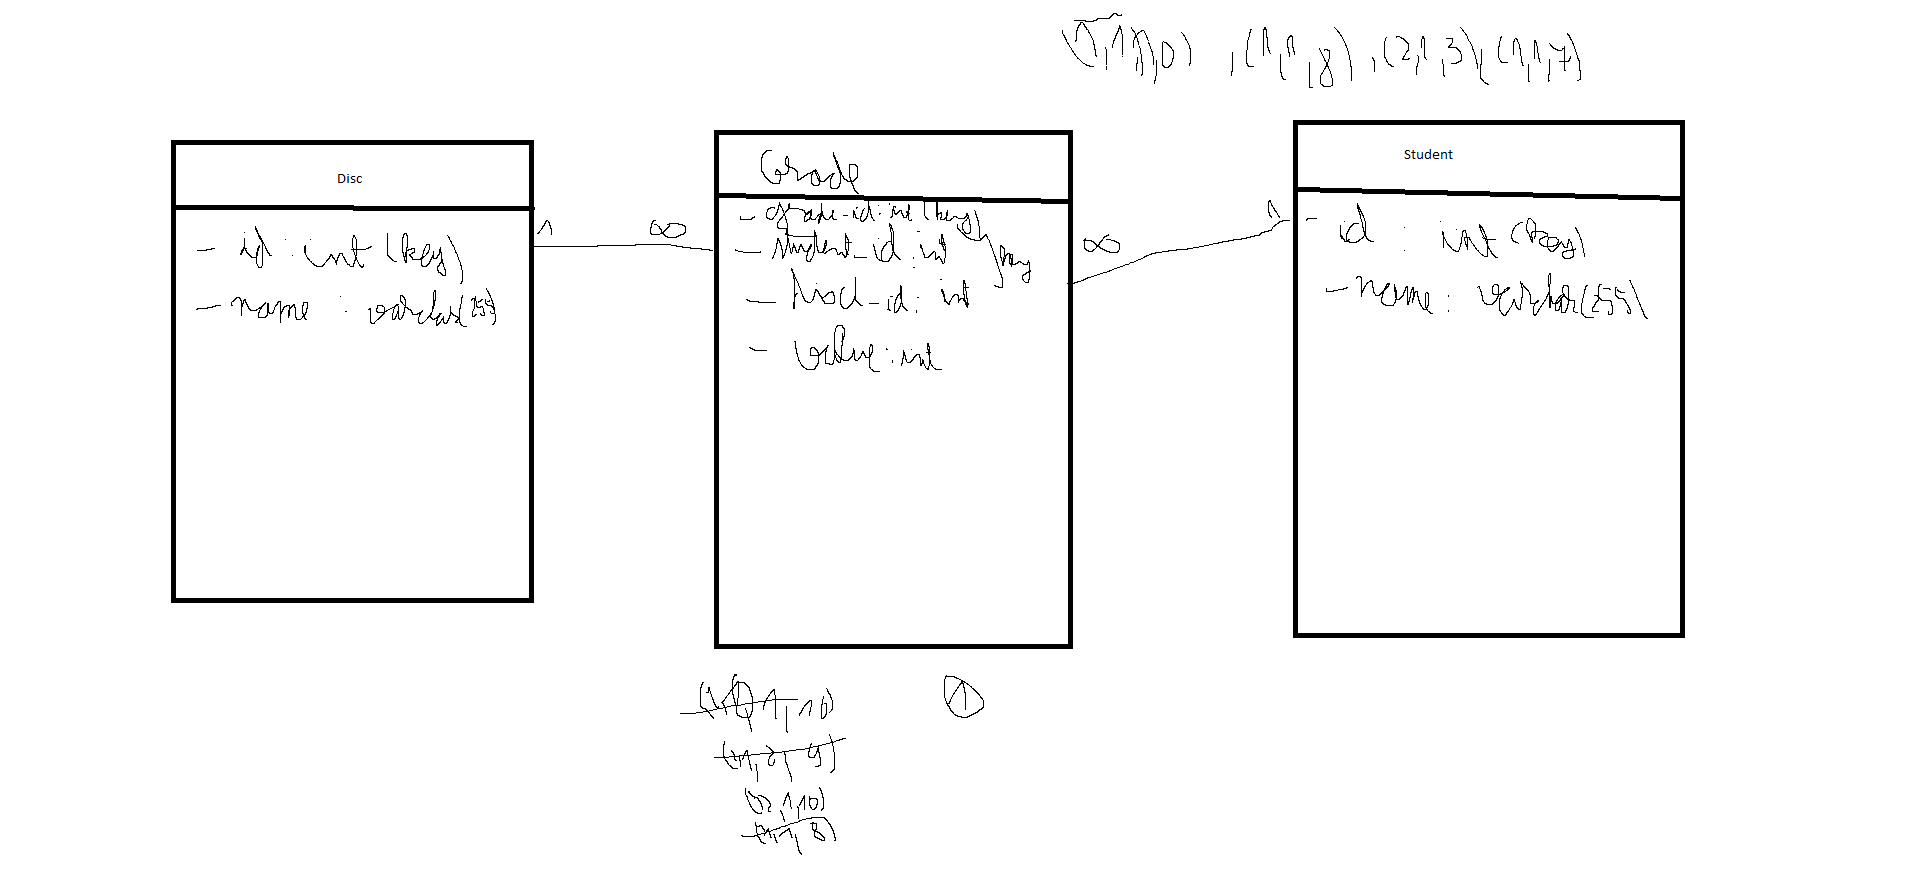 ,(1,1,8),(2,1,3),(1,1,7)
Disc
- id : int (key)
- name : varchar(255)
Grade
- grade-id: int (key)
- student_id: int
key
- disci-id: int
- value: int
Student
- id : int (key)
- name: varchar(255)
1
∞
∞
1
1